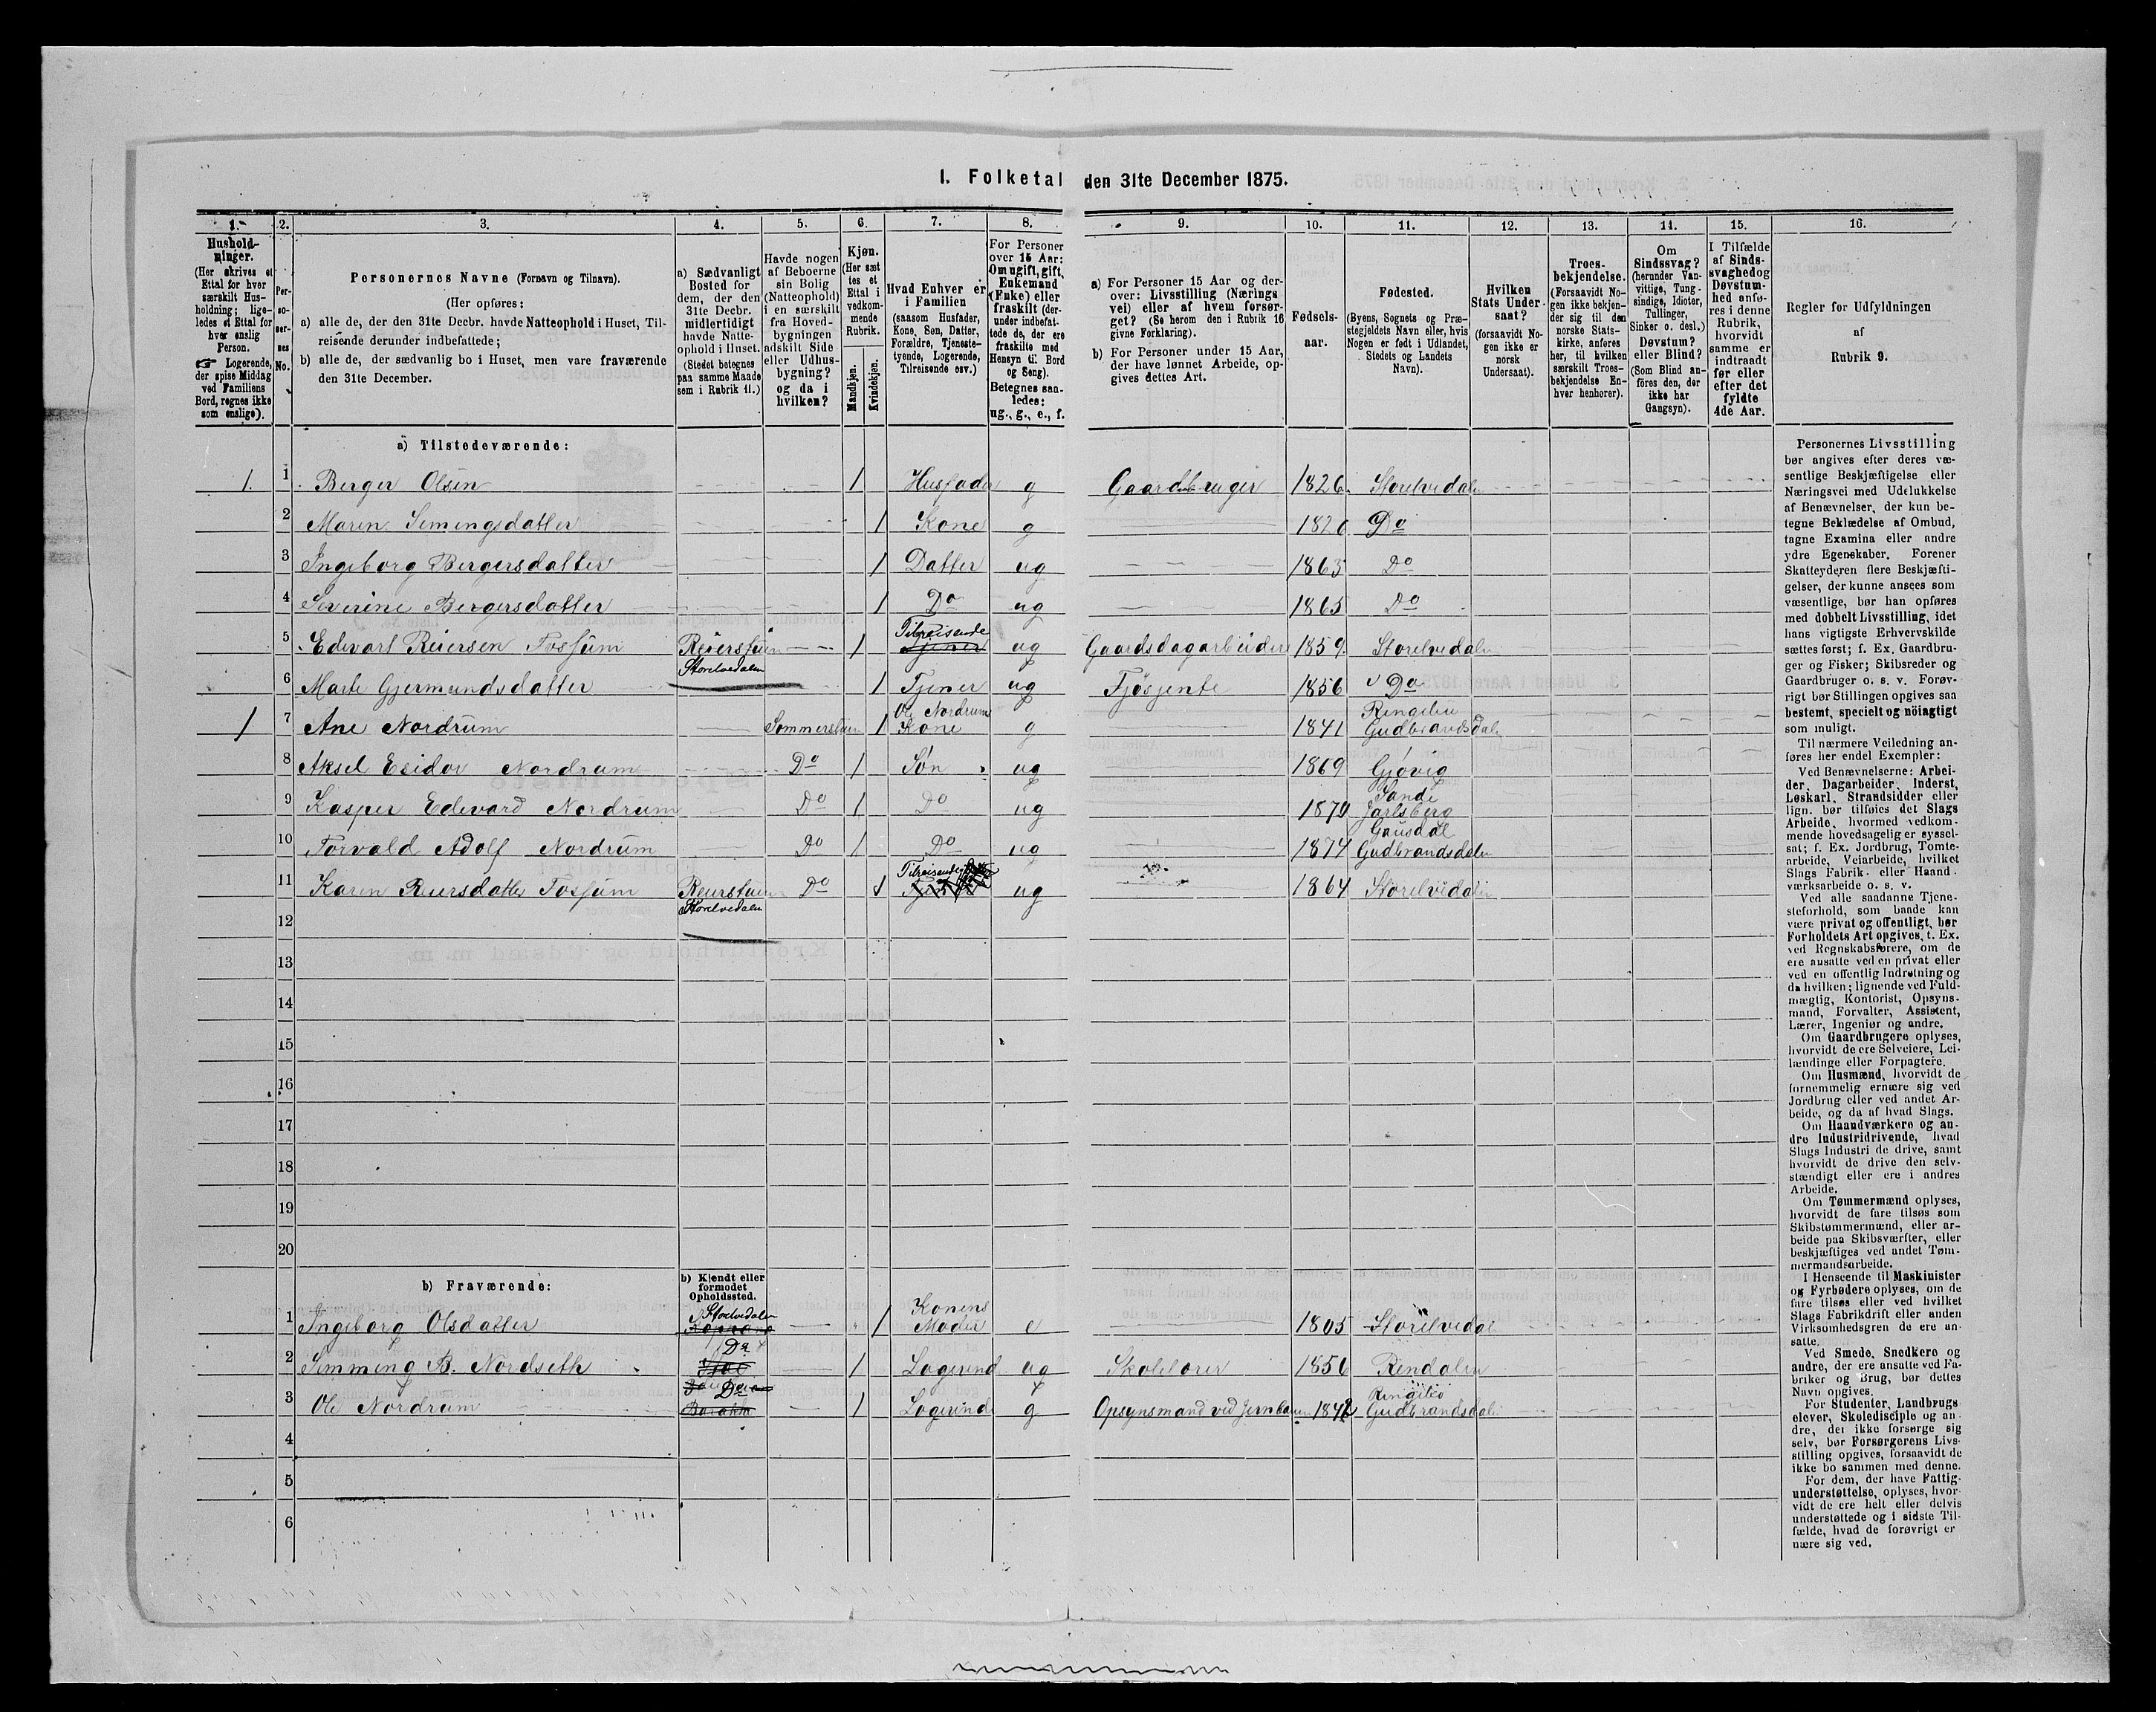 1. Folketal den 31te December 1875.
1. 2. 3. 4. 5. 6. 7. 8. 9. 10. 11. 12. 13. 14. 15. 16.
Husholdninger.
(Her skrives et
Ettal for hver
særskilt Hus-
holdning; lige-
ledes et Ettal for
hver enslig
Person.
☞ Logerende,
der spise Middag
ved Familiens
Bord, regnes ikke
som enslige).
Per-
so-
ner-
nes
No.
Personernes Navne (Fornavn og Tilnavn).
(Her opføres:
a) alle de, der den 31te Decbr. havde Natteophold i Huset, Til-
reisende derunder indbefattede;
b) alle de, der sædvanlig bo i Huset, men vare fraværende
den 31te December.
a) Sædvanligt
Bosted for
dem, der den
31te Decbr.
midlertidigt
havde Natte-
ophold i Huset.
(Stedet betegnes
paa samme Maade
sem i Rubrik 11.)
Havde nogen
af Beboerne
sin Bolig
(Natteophold)
i en særskilt
fra Hoved-
bygningen
adskilt Side
eller Udhus-
bygning?
og da i
hvilken?
Kjøn.
(Her sæt
tes et
Ettal i
vedkom-
mende
Rubrik.
Mandkjøn.
Kvindekjøn.
Hvad Enhver er
i Familien
(saasom Husfader,
Kone, Søn, Datter,
Forældre, Tjeneste-
tyende, Logerende,
Tilreisende osv.)
For Personer
over 15 Aar:
Om ugift, gift,
Enkemand
(Enke) eller
fraskilt (der-
under indbefat-
tede de, der ere
fraskilte med
Hensyn til Bord
og Seng).
Betegnes saa-
ledes:
ug., g., e., f.
a) For Personer 15 Aar og der-
over: Livsstilling (Nærings
vei) eller af hvem forsør-
get? (Se herom den i Rubrik 16
givne Forklaring).
b) For Personer under 15 Aar,
der have lønnet Arbeide, op-
gives dettes Art.
Fødsels-
aar.
Fødested.
(Byens, Sognets og Præ-
stegjeldets Navn eller, hvis
Nogen er født i Udlandet,
Stedets og Landets
Navn).
Hvilken
Stats Under-
saat?
(forsaavidt No-
gen ikke er
norsk
Undersaat).
Troes-
bekjendelse.
(Forsaavidt No-
gen ikke bekjen-
der sig til den
norske Stats-
kirke, anføres
her, til hvilken
særskilt Troes-
bekjendelse En-
hver henhører).
Om
Sindssvag?
(herunder Van-
vittige, Tung-
sindige, Idioter,
Tullinger,
Sinker o. desl.)
Døvstum?
eller Blind?
(Som Blind an-
føres den, der
ikke har
Gangsyn).
I Tilfælde
af Sinds-
svaghed og
Døvstum-
hed anfø-
res i denne
Rubrik,
hvorvidt
samme er
indtraadt
før eller
efter det
fyldte
4de Aar.
Regler for Udfyldningen
af
Rubrik 9.
a) Tilstedeværende:
1. 1 Berger Olsen 1 Husfader g Gaardbruger 1826. Storelvedalen
2 Maren Simengsdatter 1 Kone g 1820 Do
3 Ingeborg Bergersdatter 1 Datter ug 1863 Do
4 Severine Bergersdatter 1 Do ug 1865 Do
5 Edevart Reiersen Fossum Reierstuen Storelvedalen 1 Tilreisende Tjener ug Gaardsdagarbeider 1859. Storelvedalen
6 Marte Gjermundsdatter 1 Tjener ug Fjøsjente 1856 Do
1 7 Ane Nordrum Sommerstuen 1 Ole Nordrums Kone g 1841 Ringebu Gudbrandsdalen
8 Aksel Esidor Nordrum Do 1 Søn ug 1869 Gjøvig
9 Kasper Edevard Nordrum Do 1 Do ug 1870 Sande Jarlsberg
10 Torvald Adolf Nordrum Do 1 Do ug 1874 Gausdal Gudbrandsdalen
11 Karen Reiersdatter Fossum Reierstuen Storelvedalen Do 1 Tilreisende ug 1864 Storelvedalen
12
13
14
15
16
17
18
19
20
b) Fraværende:
b) Kjendt eller
formodet
Opholdssted.
1 Ingeborg Olsdatter Storelvedalen 1 Konens Moder e 1805 Storelvedal
2 Simming B. Nordseth Do 1 Logerend ug Skolelærer 1856 Rendalen
3 Ole Nordrum Do Barakke 1 Logerende g Opsynsmand ved Jernbanen 1842 Ringebo Gudbrandsdalen
4
5
6
Personernes Livsstilling
bør angives efter deres væ-
sentlige Beskjæftigelse eller
Næringsvei med Udelukkelse
af Benævnelser, der kun be-
tegne Beklædelse af Ombud,
tagne Examina eller andre
ydre Egenskaber. Forener
Skatteyderen flere Beskjæfti-
gelser, der kunne ansees som
væsentlige, bør han opføres
med dobbelt Livsstilling, idet
hans vigtigste Erhvervskilde
sættes først; f. Ex. Gaardbru-
ger og Fisker; Skibsreder og
Gaardbruger o. s. v. Forøv-
rigt bør Stillingen opgives saa
bestemt, specielt og nöiagtigt
som muligt.
Til nærmere Veiledning an-
føres her endel Exempler:
Ved Benævnelserne: Arbei-
der, Dagarbeider, Inderst,
Løskarl, Strandsidder eller
lign. bør tilføies det Slags
Arbeide, hvormed vedkom-
mende hovedsagelig er syssel-
sat; f. Ex. Jordbrug, Tomte-
arbeide, Veiarbeide, hvilket
Slags Fabrik- eller Haand-
værksarbeide o. s. v.
Ved alle saadanne Tjene-
steforhold, som baade kan
være privat og offentligt, bør
Forholdets Art opgives, t. Ex.
ved Regnskabsførere, om de
ere ansatte ved en privat eller
ved en offentlig Indretning og
da hvilken; lignende ved Fuld-
mægtig, Kontorist, Opsyns-
mand, Forvalter, Assistent,
Lærer, Ingeniør og andre.
Om Gaardbrugere oplyses,
hvorvidt de ere Selveiere, Lei-
lændinge eller Forpagtere.
Om Husmænd, hvorvidt de
fornemmelig ernære sig ved
Jordbrug eller ved andet Ar-
beide, og da af hvad Slags.
Om Haandværkere og an-
dre Industridrivende, hvad
Slags Industri de drive, samt
hvorvidt de drive den selv-
stændigt eller ere i andres
Arbeide.
Om Tømmermænd oplyses,
hvorvidt de fare tilsøs som
Skibstømmermænd, eller ar-
beide paa Skibsværfter, eller
beskjæftiges ved andet Tøm-
mermandsarbeide.
I Henseende til Maskinister
og Fyrbødere oplyses, om de
fare tilsøs eller ved hvilket
Slags Fabrikdrift eller anden
Virksomhedsgren de ere an-
satte.
Ved Smede, Snedkere og
andre, der ere ansatte ved Fa-
briker og Brug, bør dettes
Navn opgives.
For Studenter, Landbrugs-
elever, Skoledisciple og an-
dre, der ikke forsørge sig
selv, bør Forsørgerens Livs-
stilling opgives, forsaavidt de
ikke bo sammen med denne.
For dem, der have Fattig-
understøttelse, oplyses, hvor-
vidt de ere helt eller delvis
understøttede og i sidste Til-
fælde, hvad de forøvrigt er-
nære sig ved.